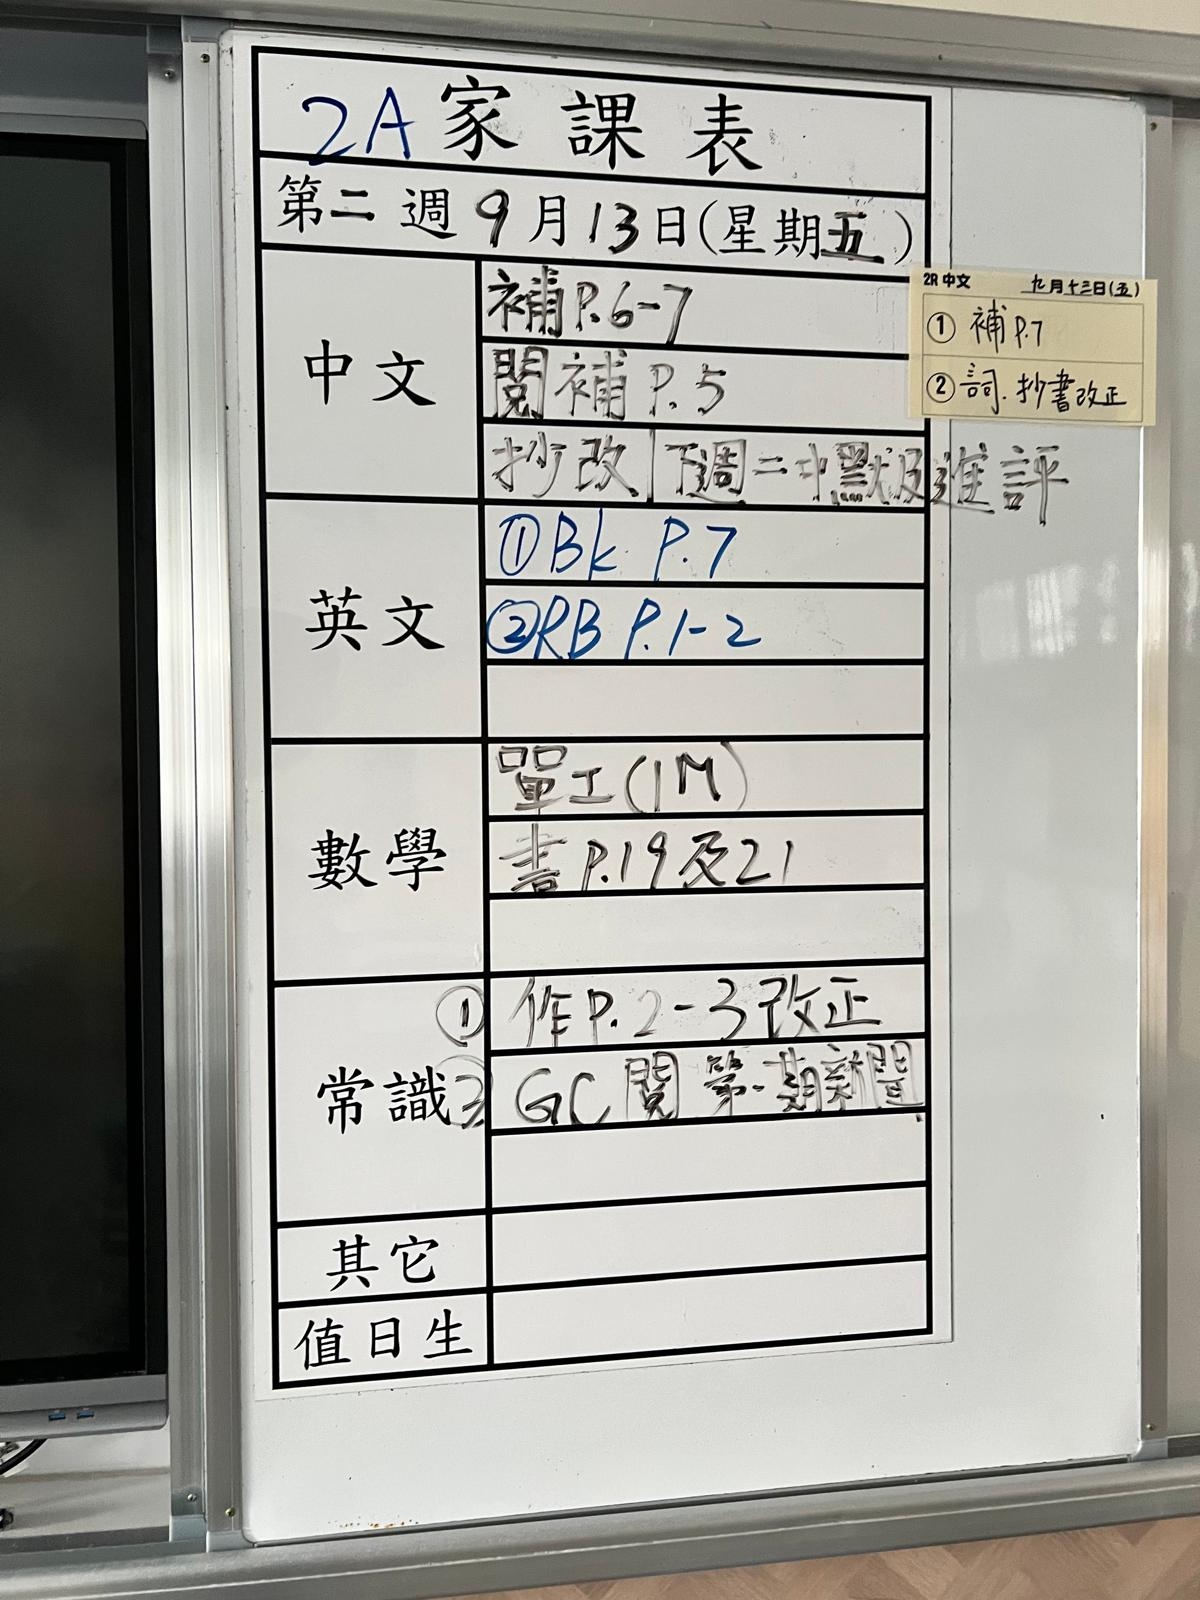 2A 家課表
第二週 9月13日(星期五)
中文
補P.6-7
閱補 P.5
抄改|下週二中默及進評
英文
①Bk P.7
②RB P.1-2
數學
單工(1M)
書P.19及21
常識
① 作P.2-3改正
② GC 閱第一期新聞
其它
值日生
2R 中文 九月十三日(五)
① 補 P.7
② 詞.抄書改正